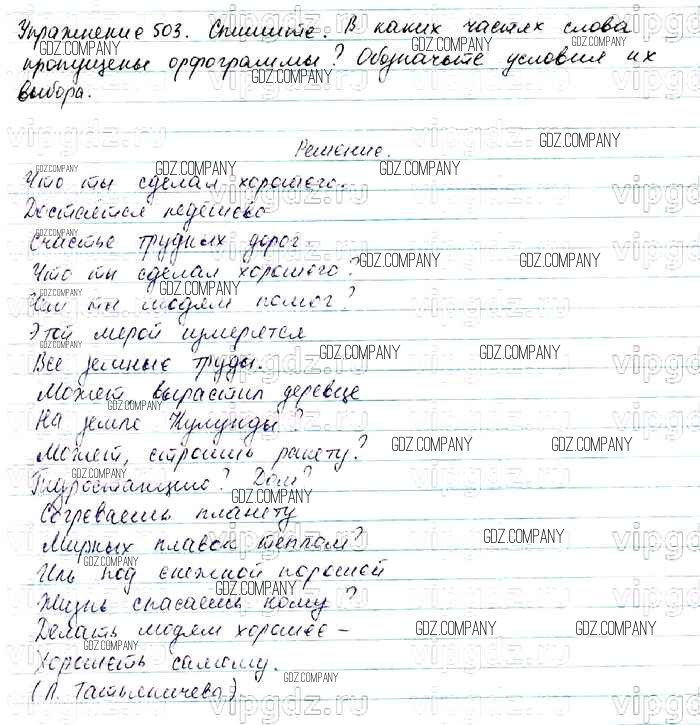 Упражнение 503. Спишите. В каких частях слова
пропущены орфограммы? Обозначьте условия их
выбора.
Решение.
Что ты сделал хорошего.
Достаётся недёшево
Счастье трудных дорог.
Что ты сделал хорошего?
Чем ты людям помог?
Этой мерой измерятся
Все земные труды.
Может, вырастил деревце
На земле Кулунды?
Может, строишь ракету?
Гидростанцию? Дом?
Согреваешь планету
Мирных плавок теплом?
Иль под снежной порошей
Жизнь спасаешь кому?
Делать людям хорошее –
Хорошеть самому.
(Л. Татьяничева)
GDZ.COMPANY
vipgdz.ru